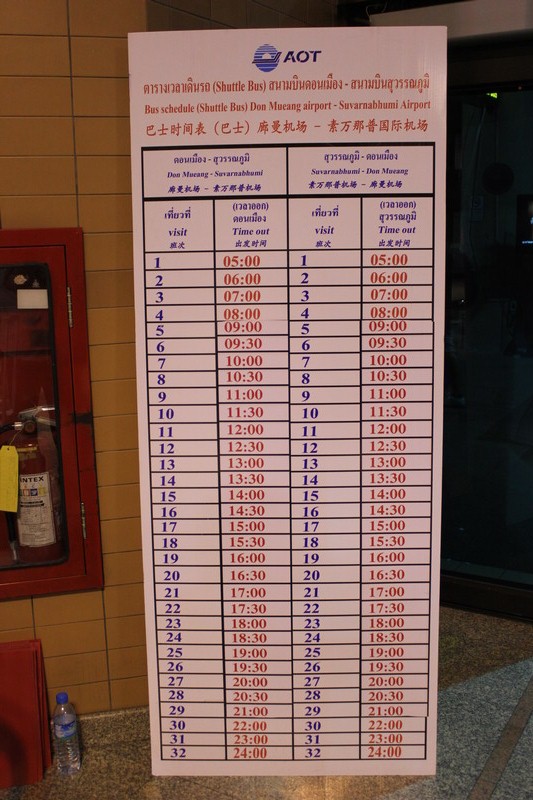 AOT
ตารางเวลาเดินรถ (Shuttle Bus) สนามบินดอนเมือง - สนามบินสุวรรณภูมิ
Bus schedule (Shuttle Bus) Don Mueang airport - Suvarnabhumi Airport
巴士时间表（巴士）廊曼机场 － 素万那普国际机场
ดอนเมือง - สุวรรณภูมิ สุวรรณภูมิ - ดอนเมือง
Don Mueang - Suvarnabhumi Suvarnabhumi - Don Mueang
廊曼机场 － 素万那普机场 素万那普机场 － 廊曼机场
เที่ยวที่ (เวลาออก) ดอนเมือง เที่ยวที่ (เวลาออก) สุวรรณภูมิ
visit Time out visit Time out
班次 出发时间 班次 出发时间
1 05:00 1 05:00
2 06:00 2 06:00
3 07:00 3 07:00
4 08:00 4 08:00
5 09:00 5 09:00
6 09:30 6 09:30
7 10:00 7 10:00
8 10:30 8 10:30
9 11:00 9 11:00
10 11:30 10 11:30
11 12:00 11 12:00
12 12:30 12 12:30
13 13:00 13 13:00
14 13:30 14 13:30
15 14:00 15 14:00
16 14:30 16 14:30
17 15:00 17 15:00
18 15:30 18 15:30
19 16:00 19 16:00
20 16:30 20 16:30
21 17:00 21 17:00
22 17:30 22 17:30
23 18:00 23 18:00
24 18:30 24 18:30
25 19:00 25 19:00
26 19:30 26 19:30
27 20:00 27 20:00
28 20:30 28 20:30
29 21:00 29 21:00
30 22:00 30 22:00
31 23:00 31 23:00
32 24:00 32 24:00